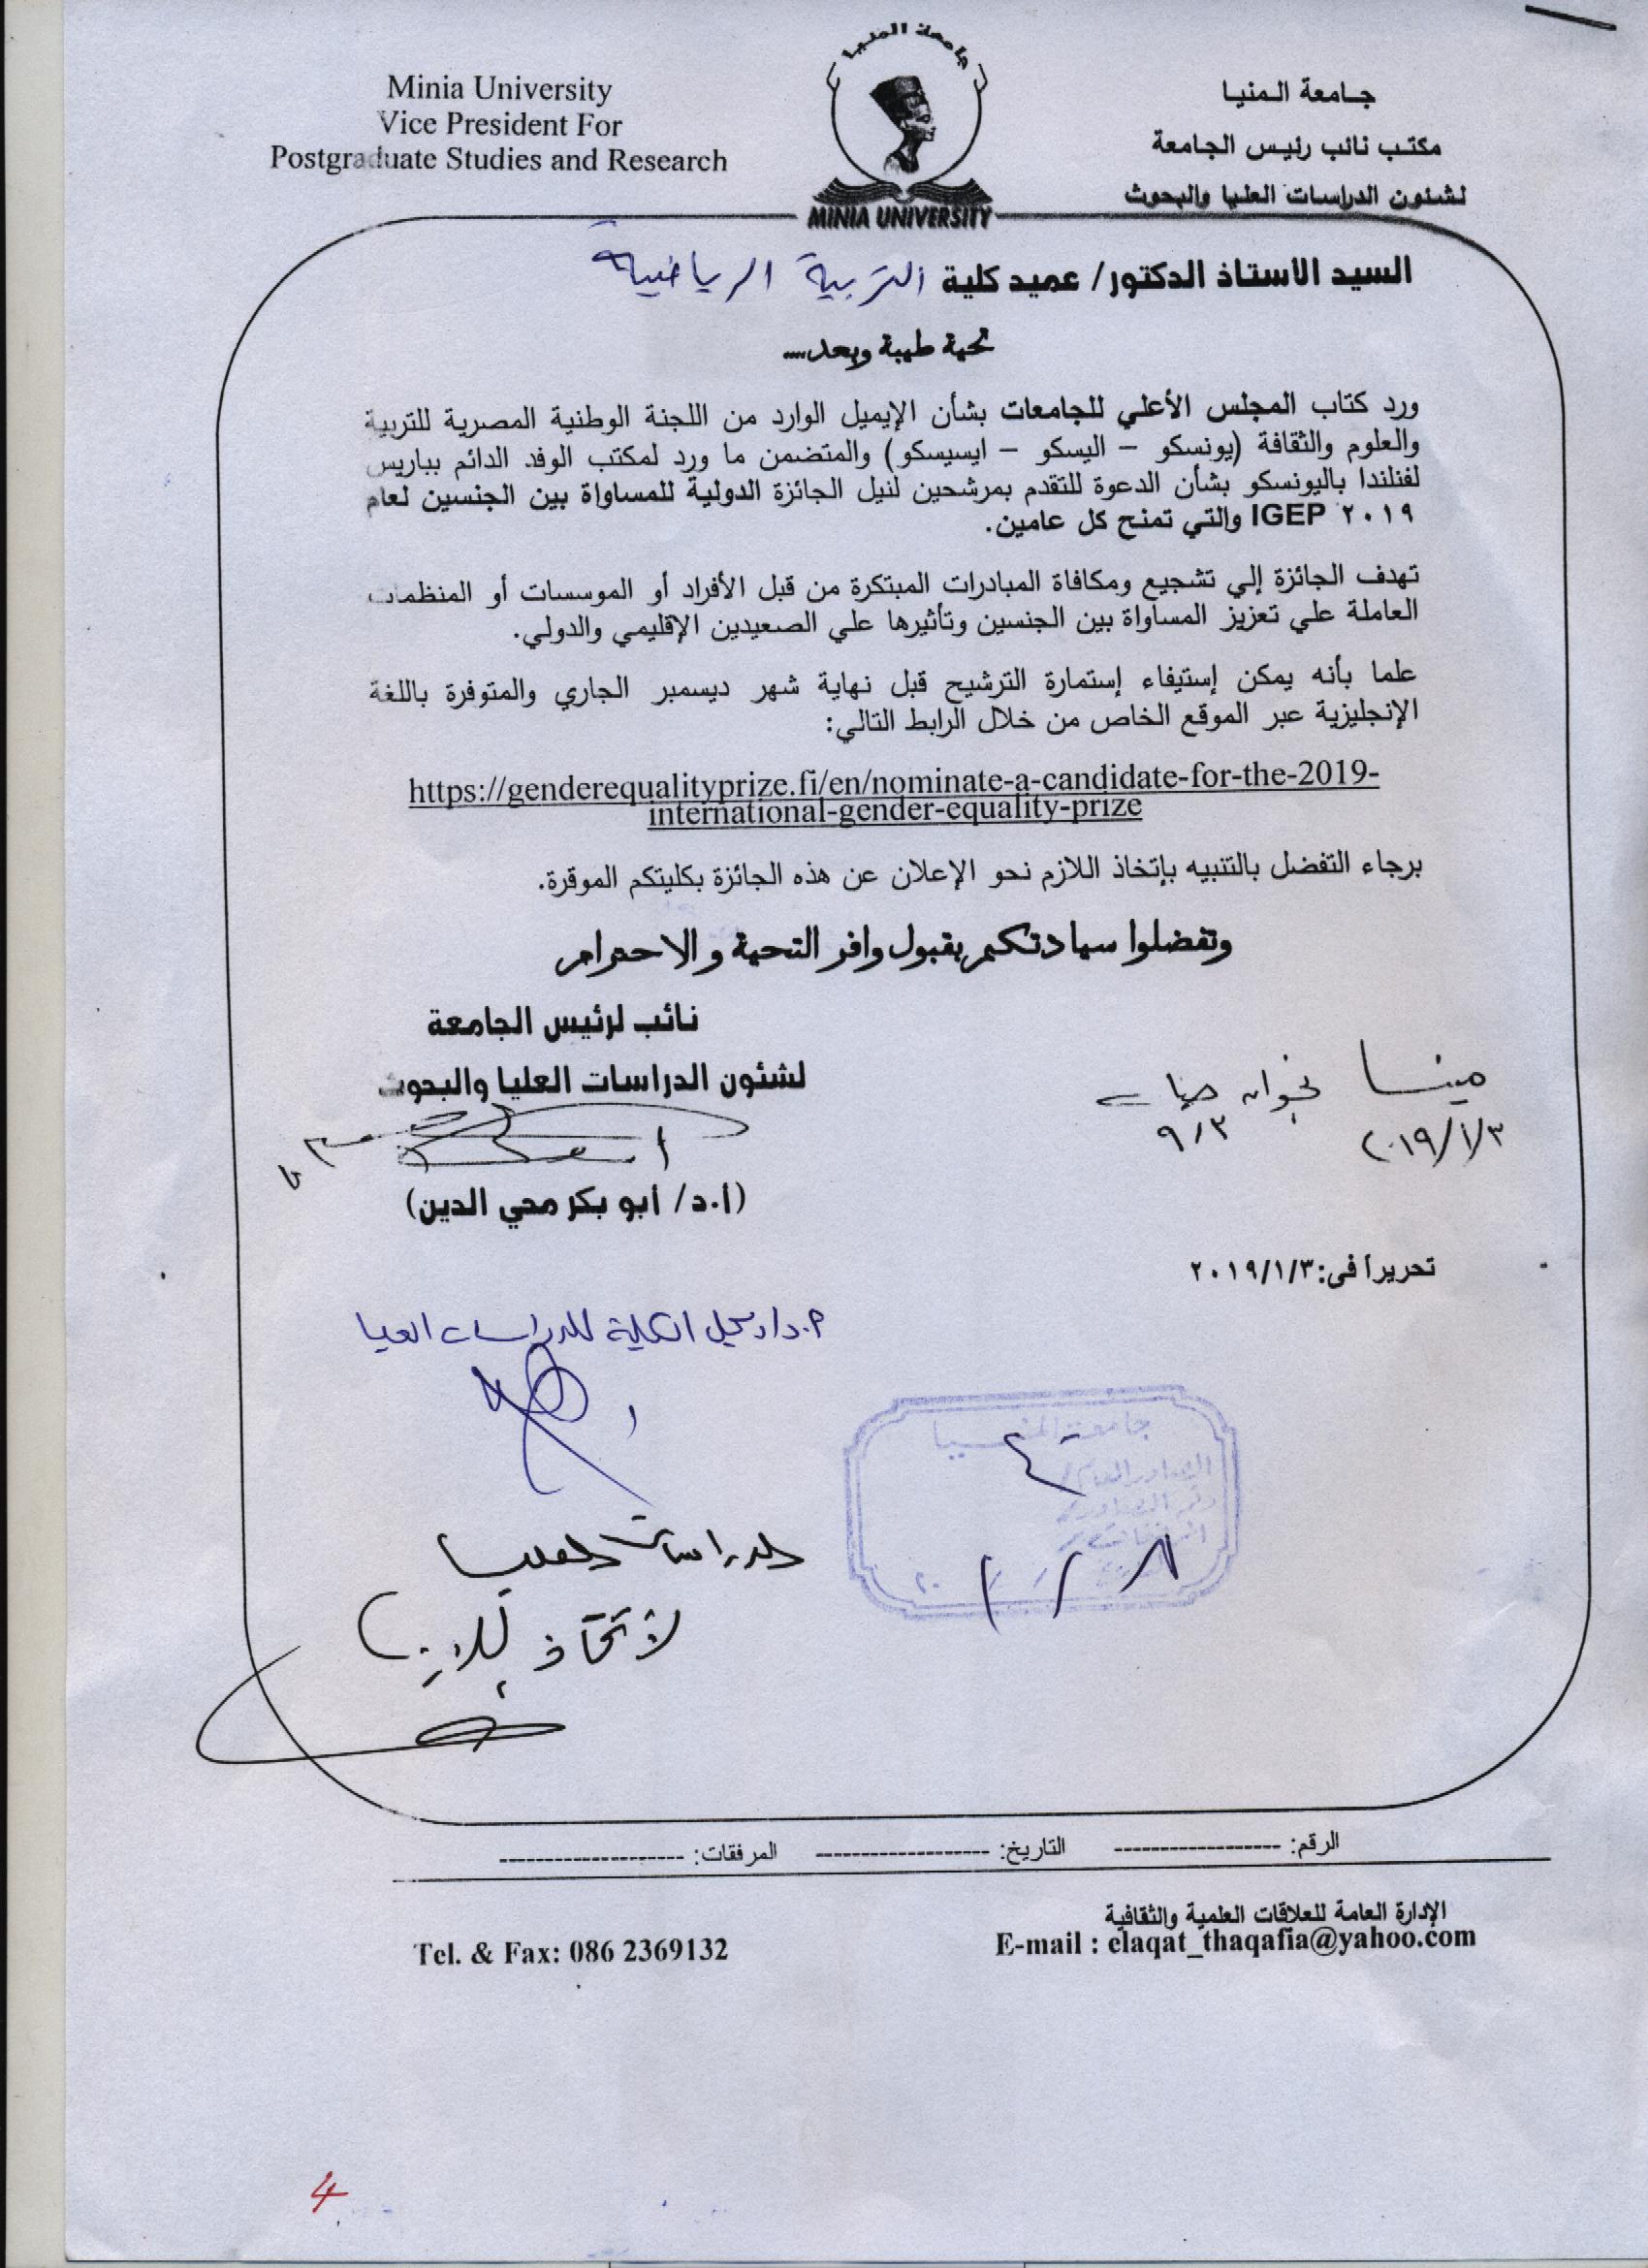 Minia University
Vice President For
Postgraduate Studies and Research
جامعة المنيا
MINIA UNIVERSITY
جامعة المنيا
مكتب نائب رئيس الجامعة
لشئون الدراسات العليا والبحوث
السيد الاستاذ الدكتور/ عميد كلية التربية الرياضية
تحية طيبة وبعد....
ورد كتاب المجلس الأعلي للجامعات بشأن الإيميل الوارد من اللجنة الوطنية المصرية للتربية
والعلوم والثقافة (يونسكو – اليسكو – ايسيسكو) والمتضمن ما ورد لمكتب الوفد الدائم بباريس
لفنلندا باليونسكو بشأن الدعوة للتقدم بمرشحين لنيل الجائزة الدولية للمساواة بين الجنسين لعام
٢٠١٩ IGEP والتي تمنح كل عامين.
تهدف الجائزة إلي تشجيع ومكافاة المبادرات المبتكرة من قبل الأفراد أو الموسسات أو المنظمات
العاملة علي تعزيز المساواة بين الجنسين وتأثيرها علي الصعيدين الإقليمي والدولي.
علما بأنه يمكن إستيفاء إستمارة الترشيح قبل نهاية شهر ديسمبر الجاري والمتوفرة باللغة
الإنجليزية عبر الموقع الخاص من خلال الرابط التالي:
https://genderequalityprize.fi/en/nominate-a-candidate-for-the-2019-
international-gender-equality-prize
برجاء التفضل بالتنبيه بإتخاذ اللازم نحو الإعلان عن هذه الجائزة بكليتكم الموقرة.
وتفضلوا سيادتكم بقبول وافر التحية والاحترام
نائب لرئيس الجامعة
لشئون الدراسات العليا والبحوث
(أ.د/ أبو بكر محي الدين)
٢٠١٩/١/٣
تحريرا في: ٢٠١٩/١/٣
أ.د/ وكيل الكلية للدراسات العليا
جامعة المنيا
الدراسات العليا
لاتخاذ اللازم
الرقم: ------------------- التاريخ: ------------------- المرفقات: --------------------
الإدارة العامة للعلاقات العلمية والثقافية
E-mail : elaqat_thaqafia@yahoo.com
Tel. & Fax: 086 2369132
4